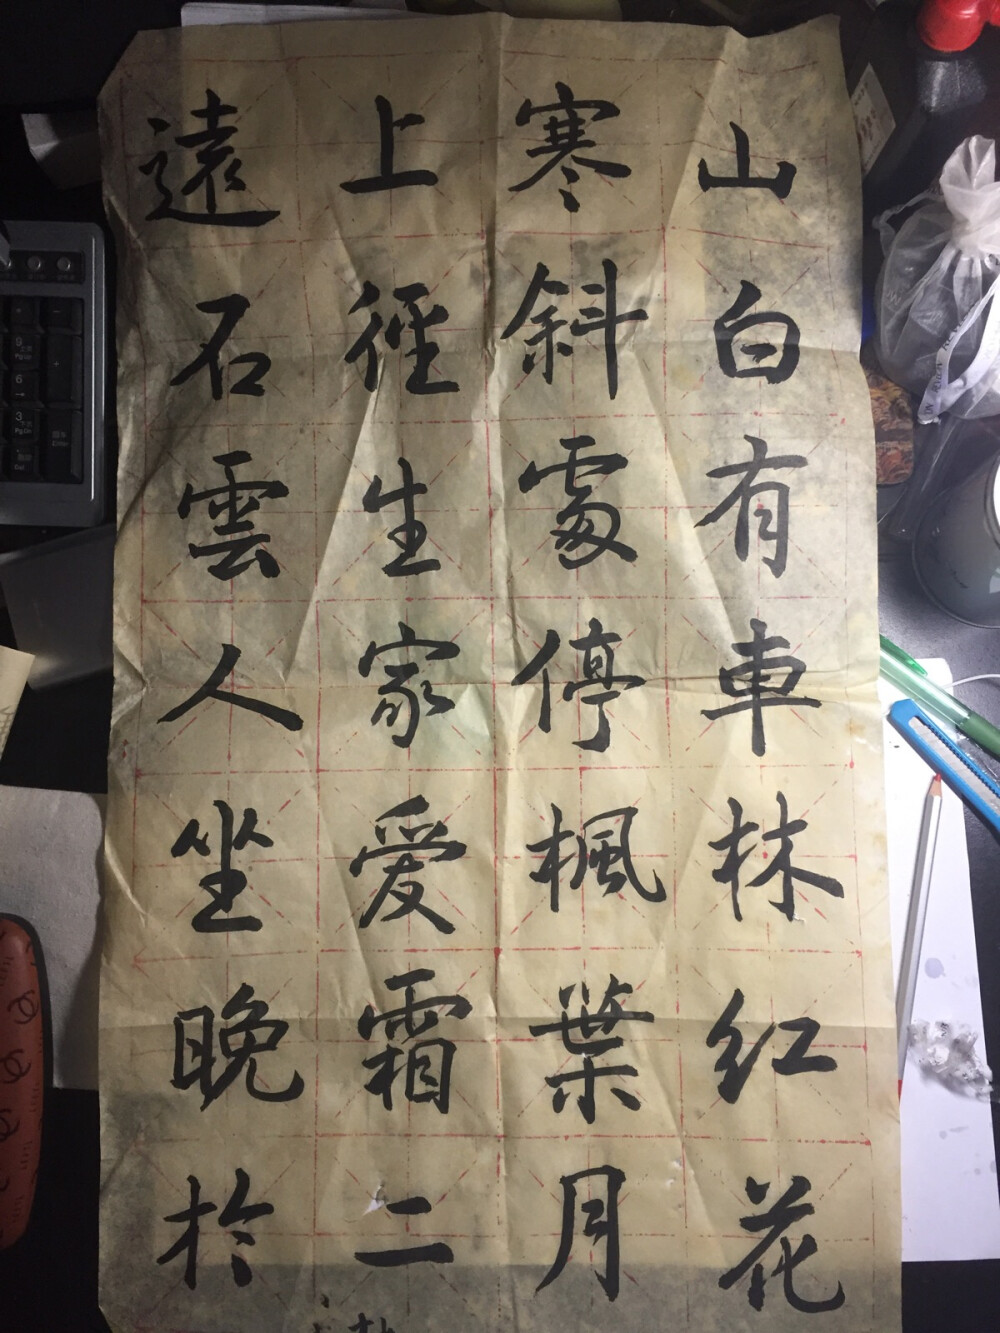 遠上寒山
石徑斜白
雲生處有
人家停車
坐愛楓林
晚霜葉红
於二月花